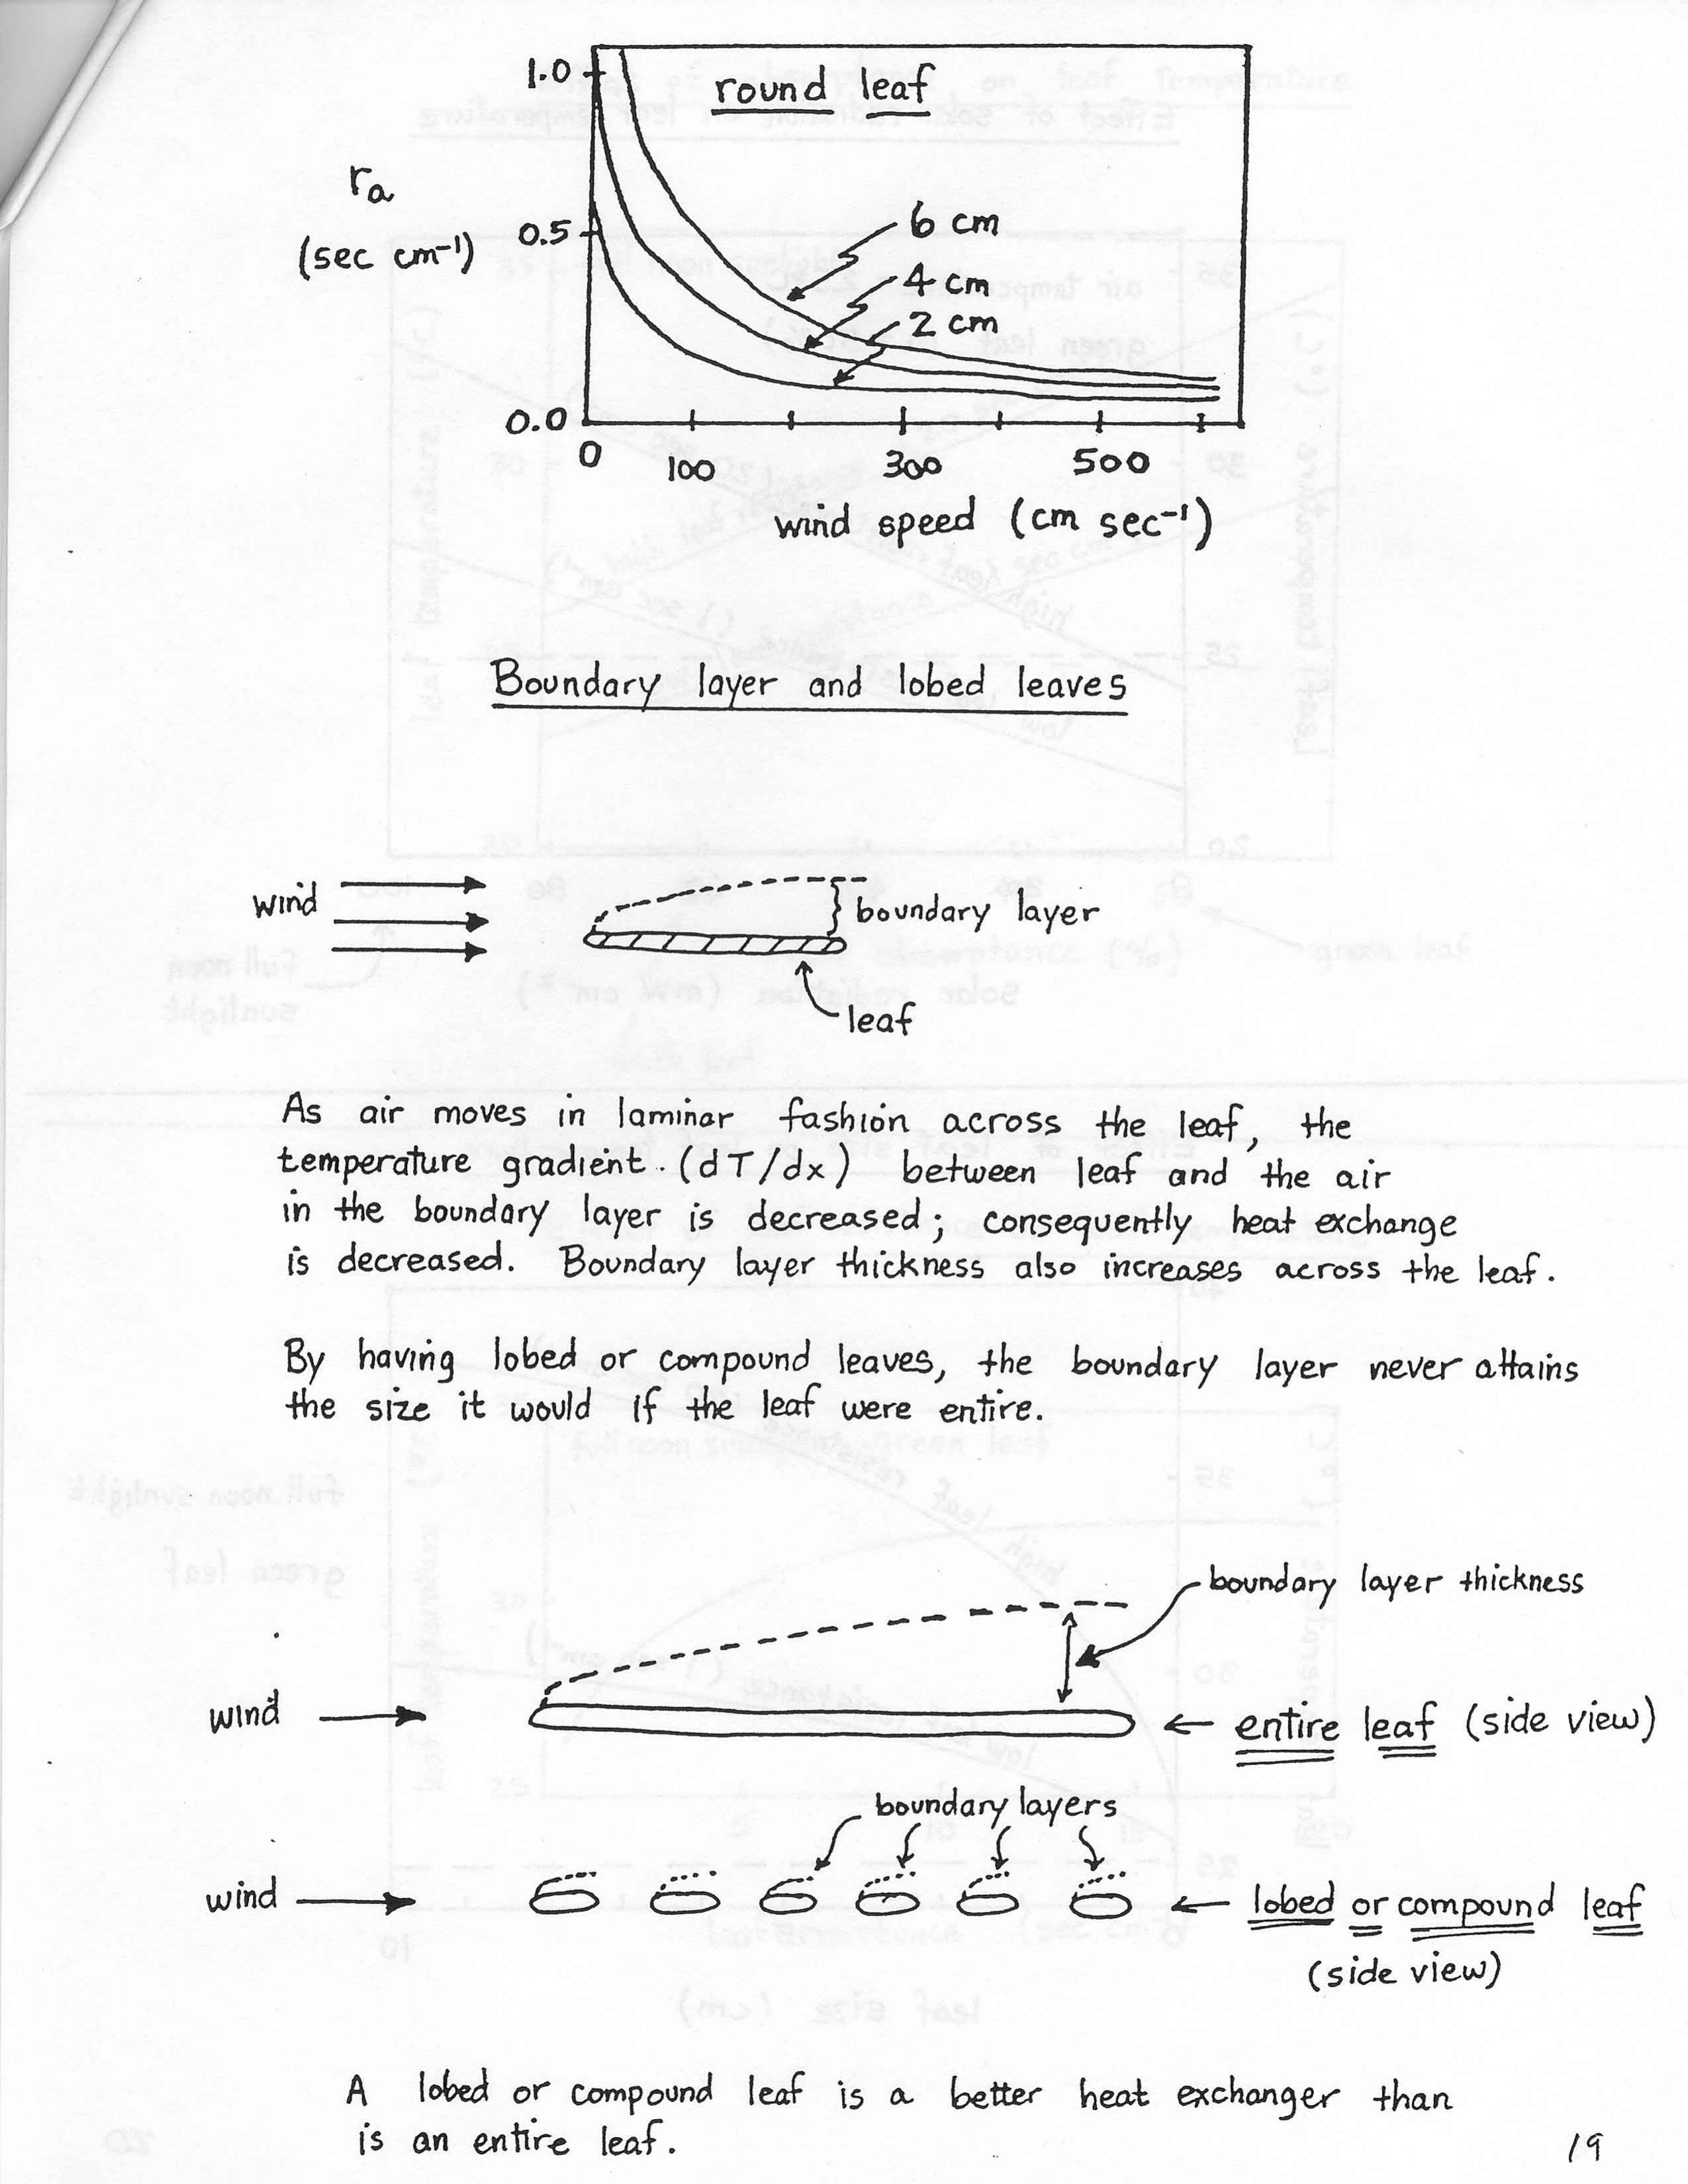 round leaf
1.0
ra
(sec cm⁻¹)
0.5
6 cm
4 cm
2 cm
0.0
0 100 300 500
wind speed (cm sec⁻¹)
Boundary layer and lobed leaves
wind
boundary layer
leaf
As air moves in laminar fashion across the leaf, the
temperature gradient (dT/dx) between leaf and the air
in the boundary layer is decreased; consequently heat exchange
is decreased. Boundary layer thickness also increases across the leaf.
By having lobed or compound leaves, the boundary layer never attains
the size it would if the leaf were entire.
boundary layer thickness
wind
entire leaf (side view)
boundary layers
wind
lobed or compound leaf
(side view)
A lobed or compound leaf is a better heat exchanger than
is an entire leaf.
19